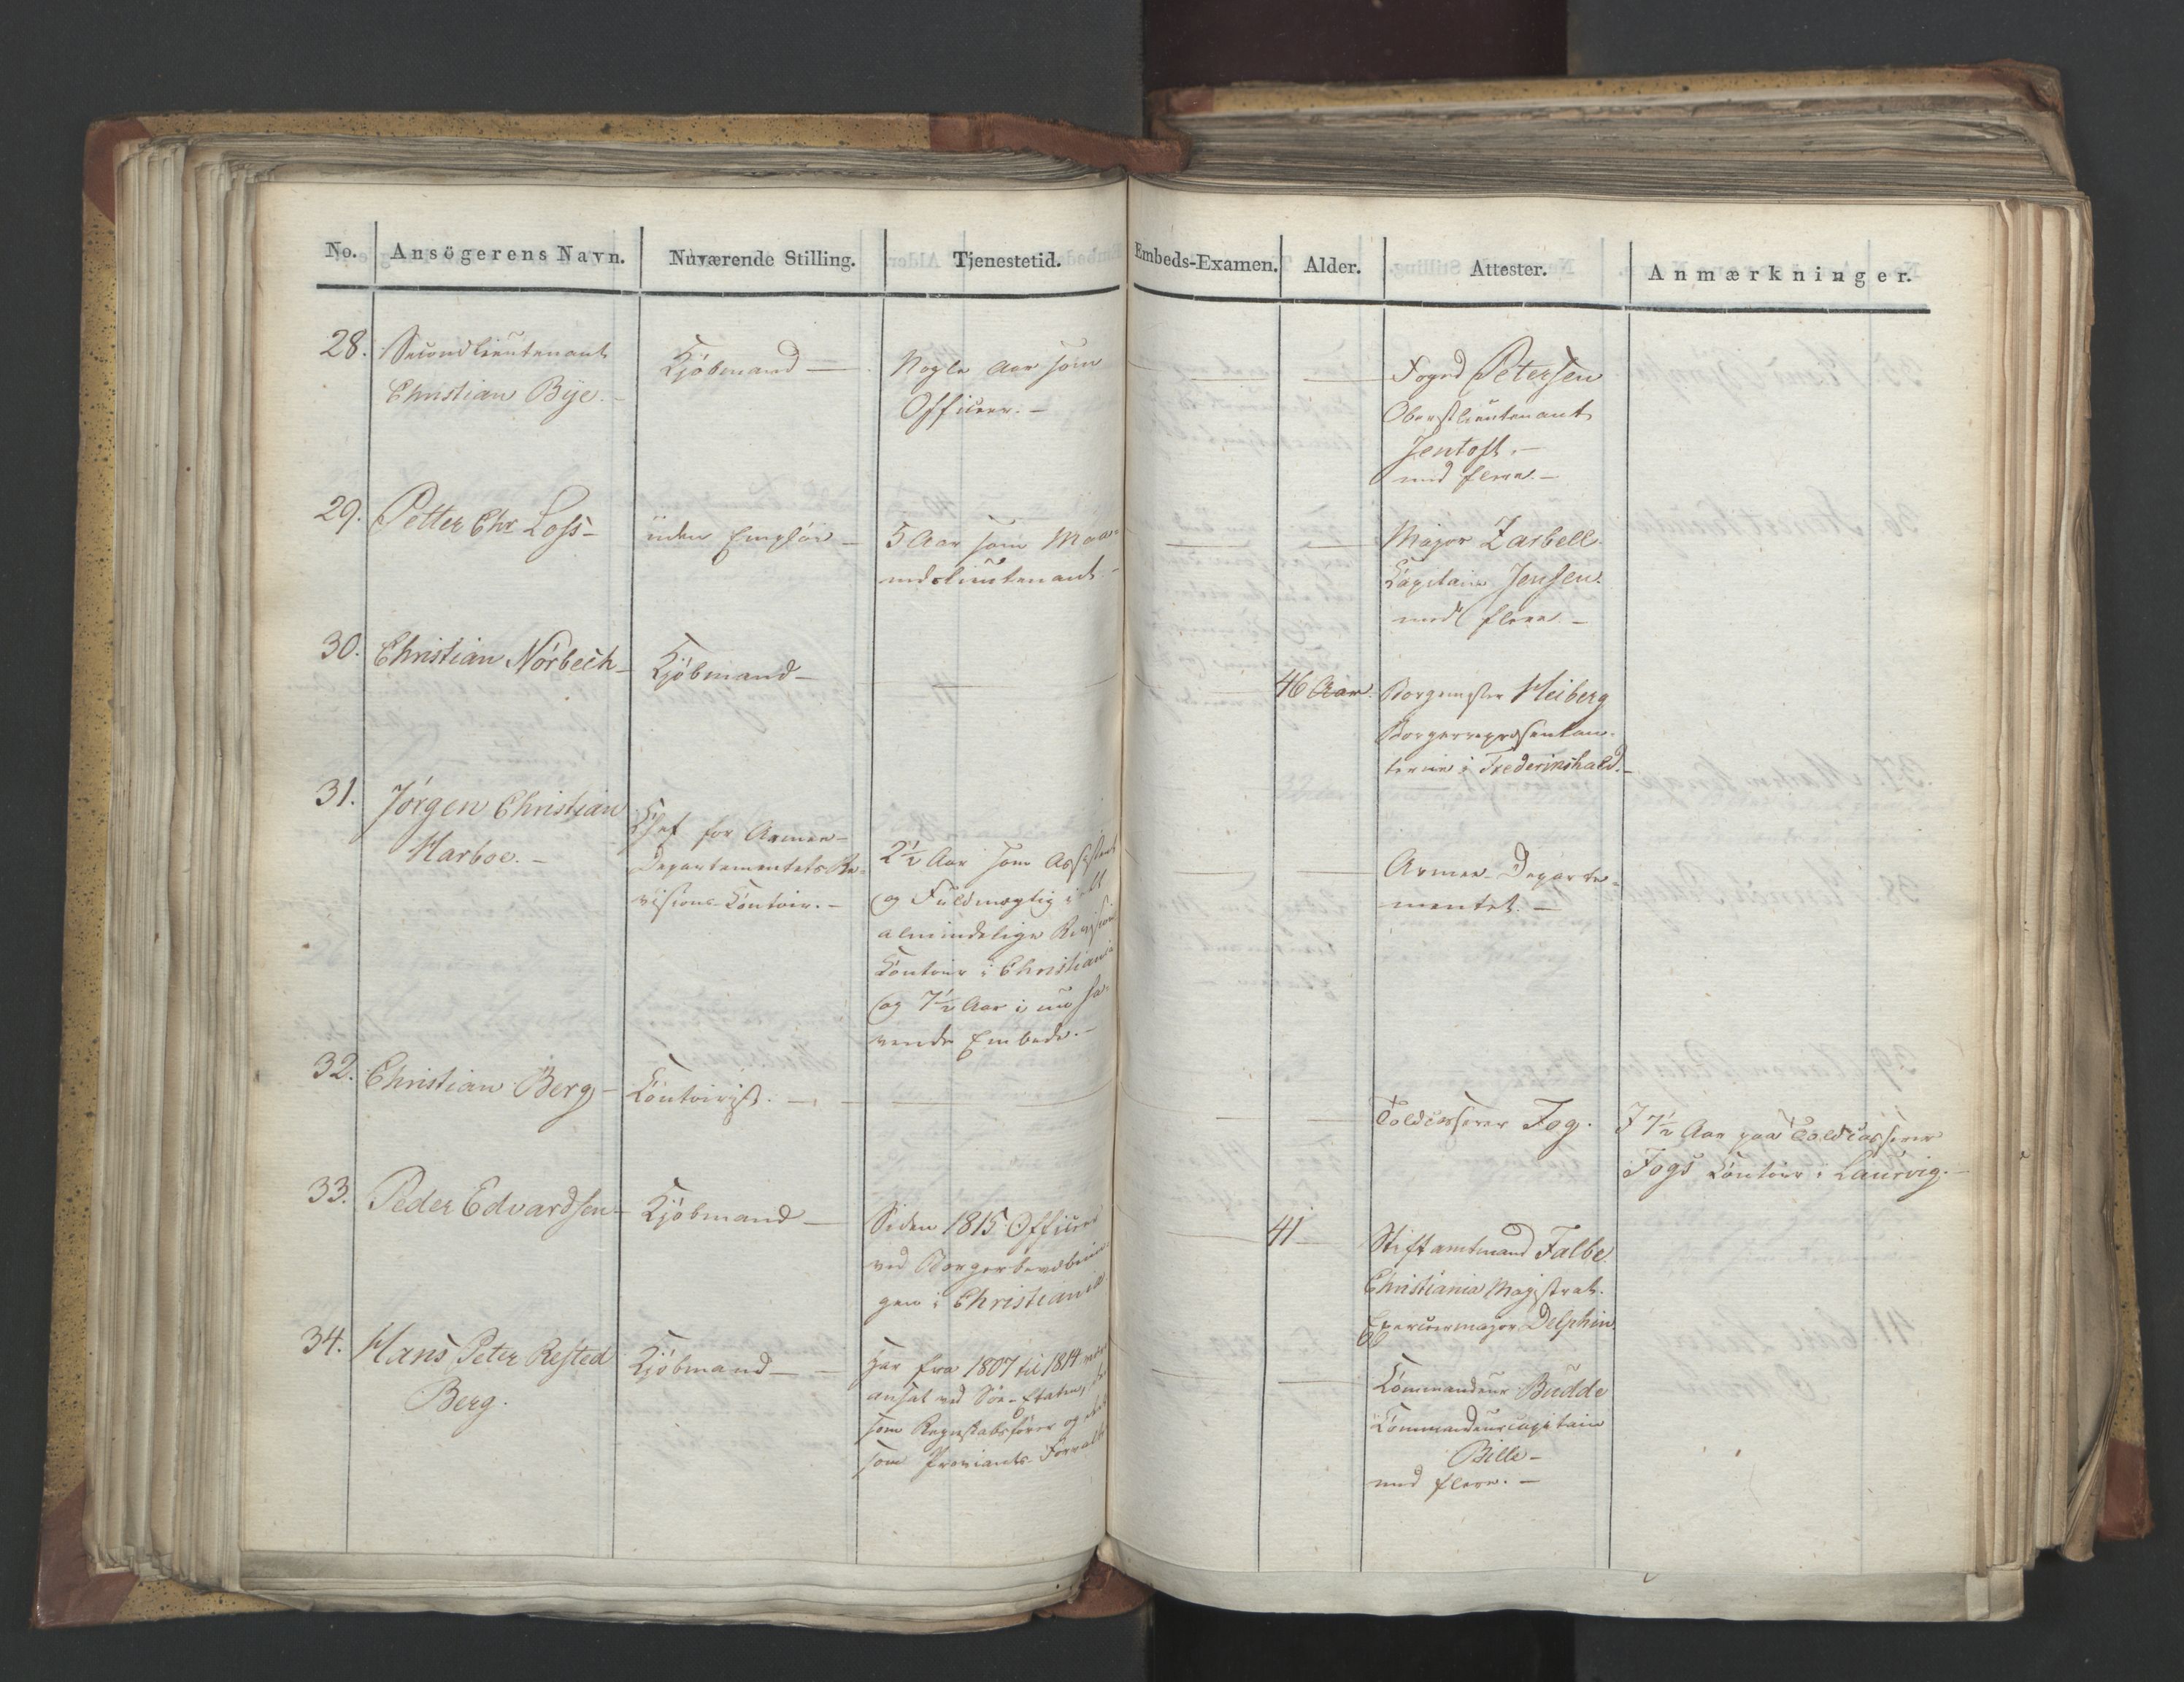 No. Ansögerens Navn. Nuværende Stilling. Tjenestetid. Embeds-Examen. Alder. Attester. Anmærkninger.
28. Secondlieutenant
Christian Bye.
Kjöbmand —
Nogle Aar som
Officeer. —
Foged Petersen
Oberstlieutenant
Jentoft. —
med flere. —
29. Petter Chr. Loss —
uden Employ —
5 Aar som Maa-
nedslieutenant. —
Major Zarbell.
Capitain Jensen.
med flere —
30. Christian Nörbech —
Kjöbmand —
46 Aar.
Borgemester Heiberg
Borgerrepræsentan-
terne i Frederikshald. —
31. Jörgen Christian
Harboe. —
Chef for Armee-
Departementets Re-
visions-Contoir. —
2½ Aar som Assistent
og Fuldmægtig i det
almindelige Revisions
Contoir i Christiania
og 7½ Aar i nu ha-
vende Embede. —
Armee-Departe-
mentet. —
32. Christian Berg —
Contoirist. —
Toldcasserer Fog.
I 7½ Aar paa Toldcasserer
Fogs Contoir i Laurvig. —
33. Peder Edvardsen —
Kjöbmand —
Siden 1815 Officeer
ved Borgerbevæbnin-
gen i Christiania
41 —
Stiftamtmand Falbe.
Christiania Magistrat.
Exerceermajor Delphin.
34. Hans Peter Rested
Berg.
Kjöbmand —
Har fra 1807 til 1814 været
ansat ved Söe-Etaten,
som Regnskabsförer og
som Proviants-Forvalter
Commandeur Budde
Commandeurcapitain
Bille —
med flere. —